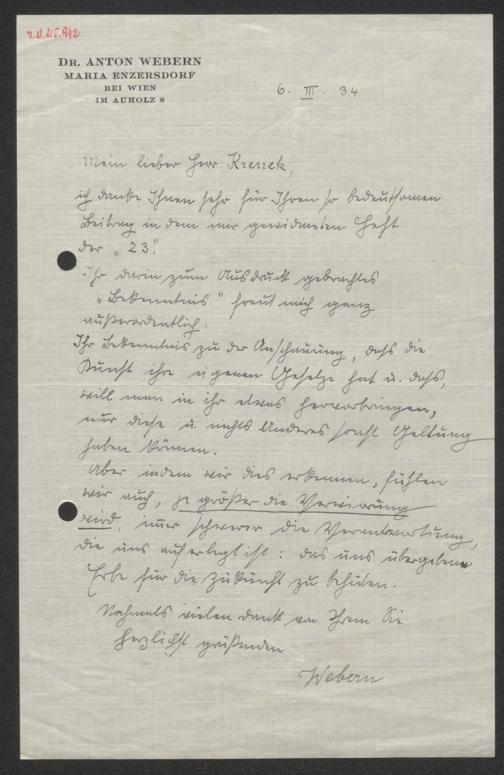 J.N.215.942
DR. ANTON WEBERN
MARIA ENZERSDORF
BEI WIEN
IM AUHOLZ 8
6. III. 34
Mein lieber Herr Krenek,
ich danke Ihnen sehr für Ihren so bedeutsamen
Beitrag in dem mir gewidmeten Heft
der „23".
Ihr darin zum Ausdruck gebrachtes
„Bekenntnis" freut mich ganz
außerordentlich.
Ihr Bekenntnis zu der Anschauung, dass die
Kunst ihre eigenen Gesetze hat u. dass,
will man in ihr etwas hervorbringen,
nur diese u. nichts Anderes sonst Geltung
haben können.
Aber indem wir dies erkennen, fühlen
wir auch, je größer die Verwirrung
wird, immer schwerer die Verantwortung,
die uns auferlegt ist: das uns übergebene
Erbe für die Zukunft zu behüten.
Nochmals vielen Dank von Ihrem Sie
herzlichst grüßenden
Webern